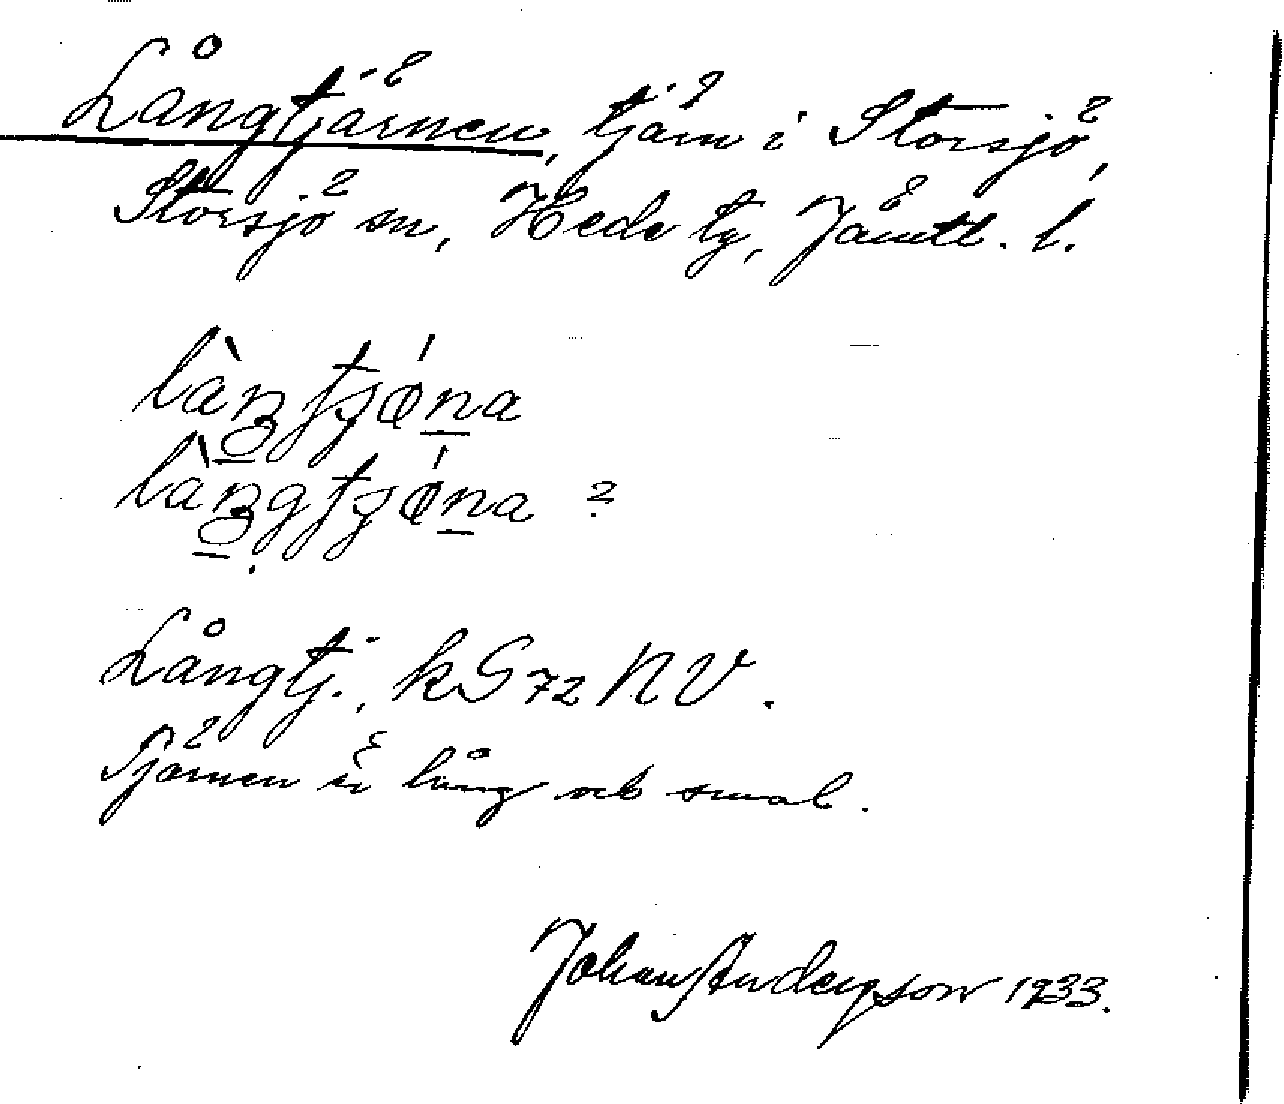 Långtjärnen, tjärn i Storsjö,
Storsjö sn, Hede tg, Jämtl. l.
Långtj., kS 72 NV.
Tjärnen är lång ock smal.
Johan Anderson 1933.